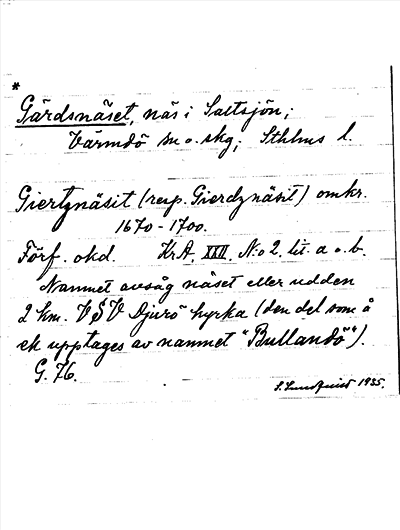 *
Gärdsnäset, näs i Saltsjön;
Värmdö sn o. skg; Sthlms l.
Giertznäsit (resp. Gierdznäsit) omkr.
1670-1700.
Förf. okd. Kr.A, XXII, N:o 2, lit. a o. b.
Namnet avsåg näset eller udden
2 km. VSV Djurö kyrka (den del som å
ek upptages av namnet "Bullandö").
G. 76.
S. Lundquist 1935.